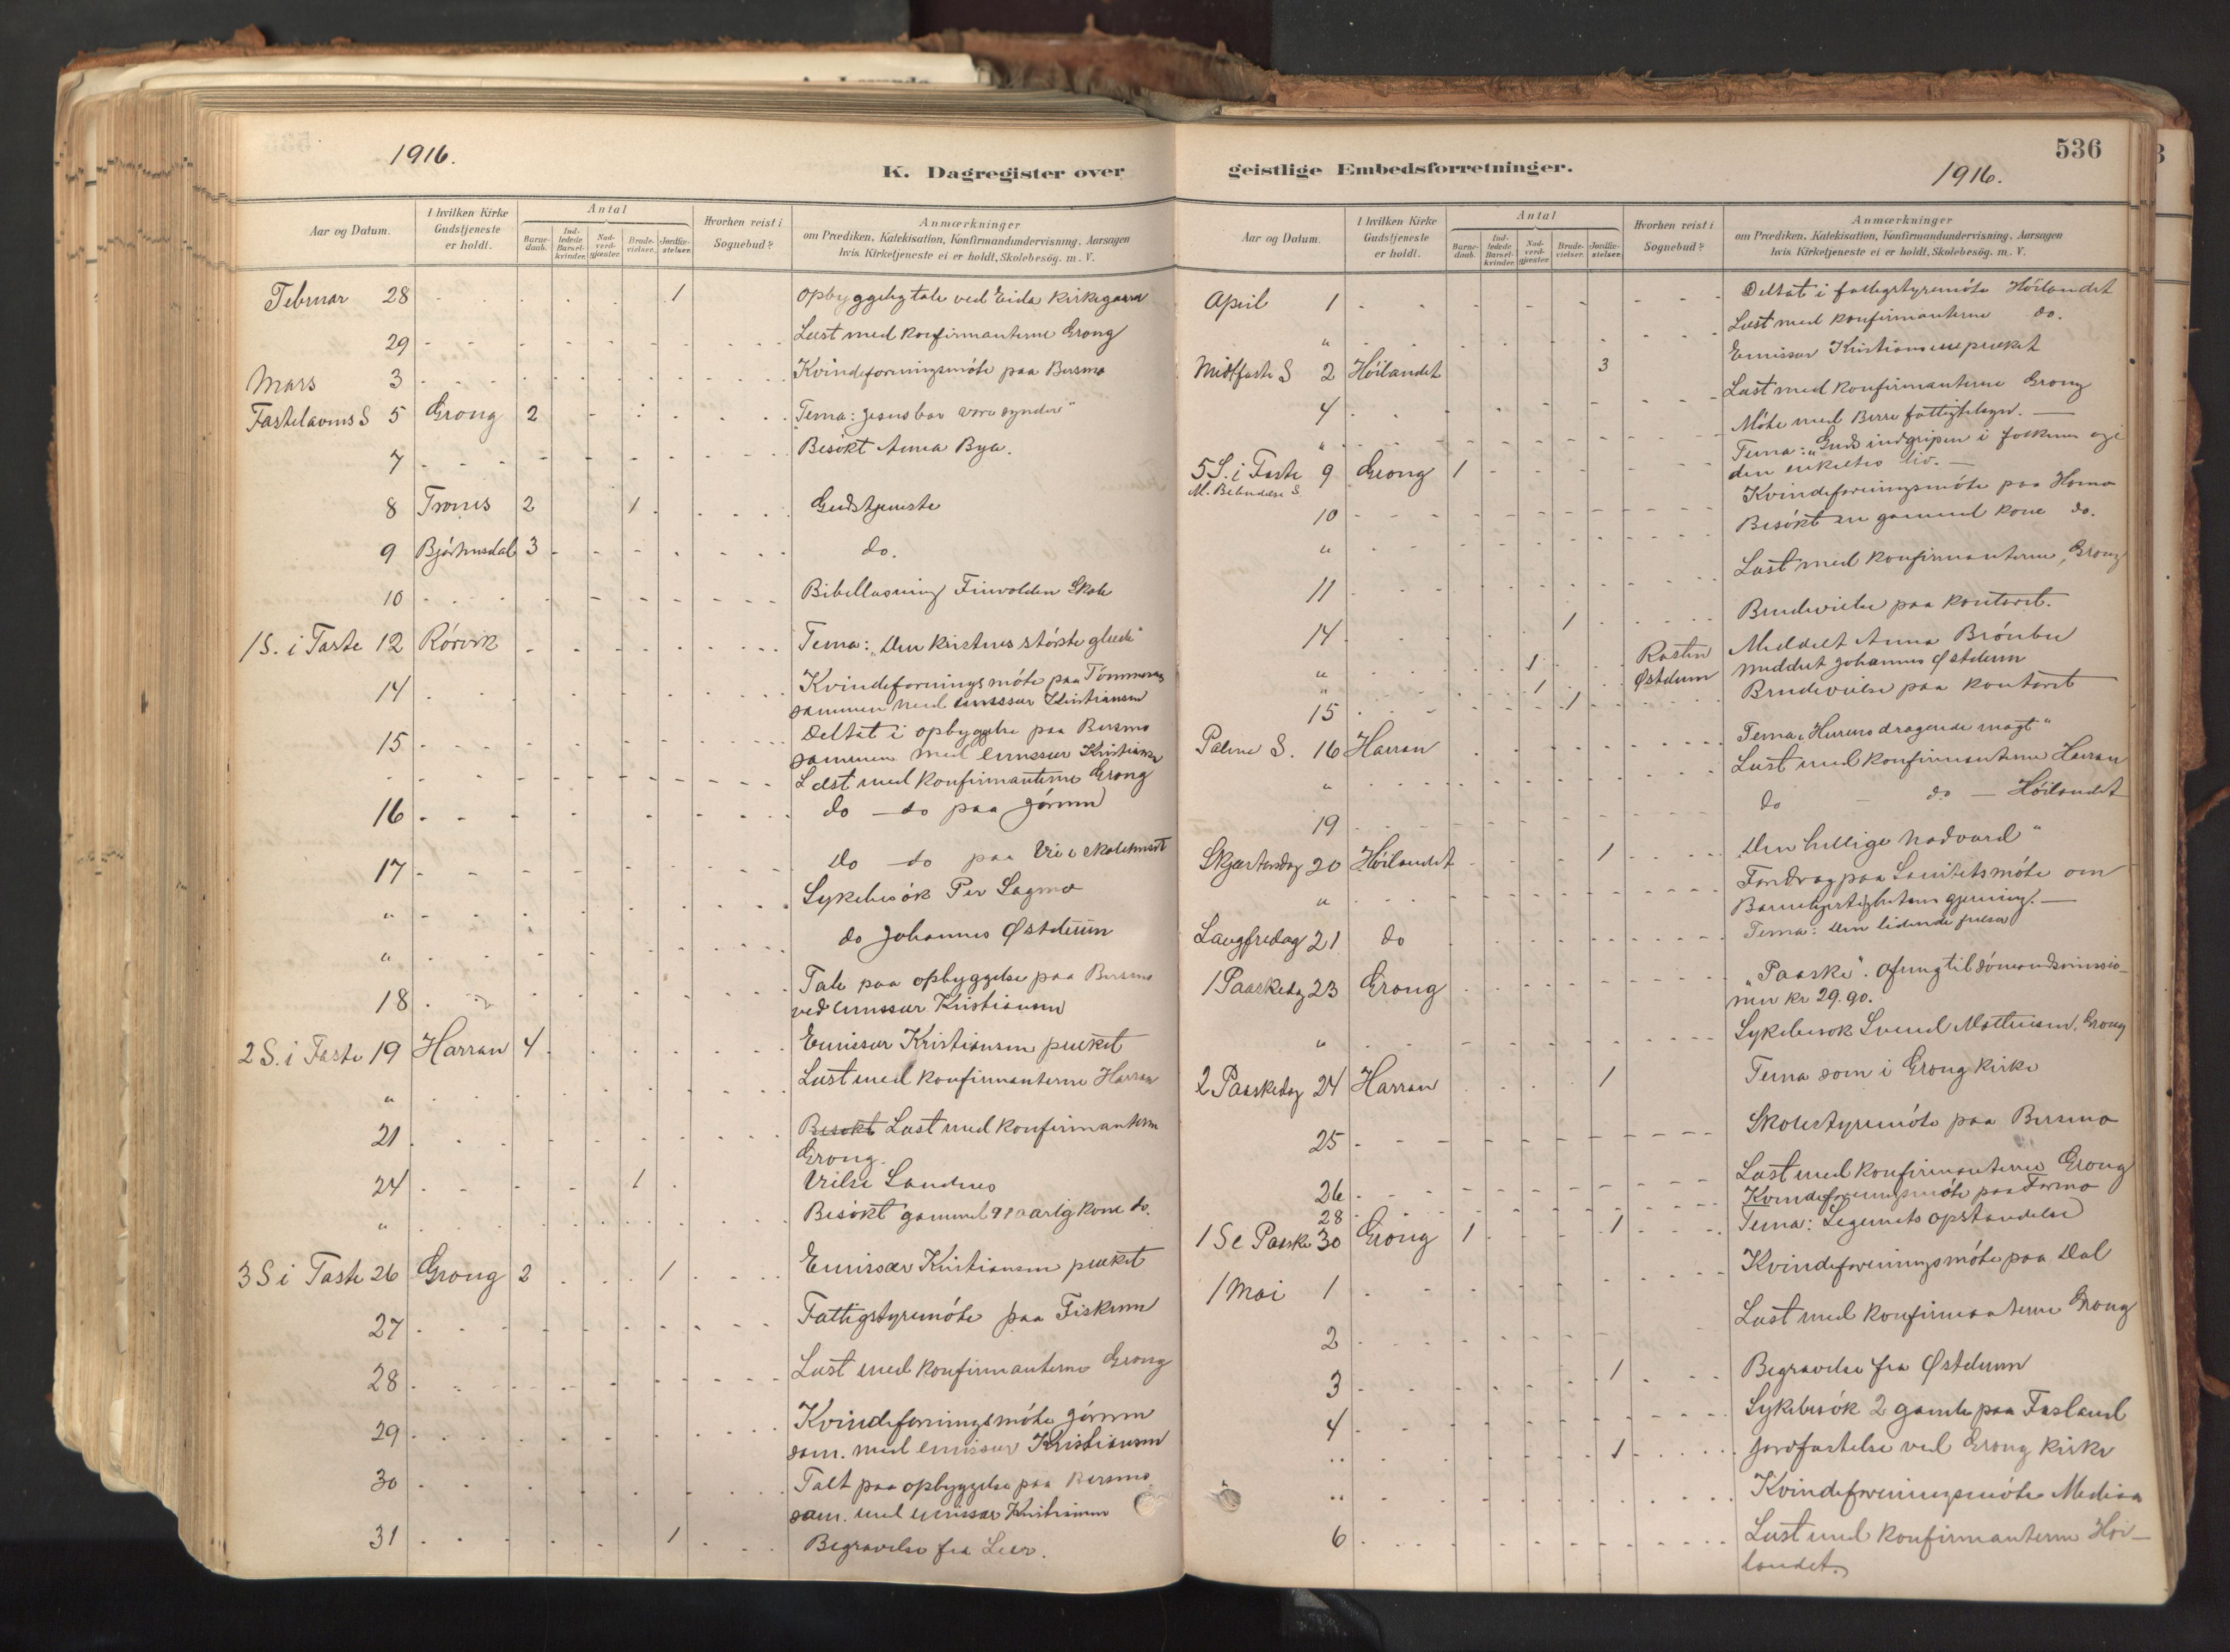 1916.
K. Dagregister over
Aar og Datum.
I hvilken Kirke Gudstjeneste er holdt.
Antal
Barne-daab.
Ind-ledede Barsel-kvinder.
Nad-verd-gjæster.
Brude-vielser.
Jordfæ-stelser.
Hvorhen reist i Sognebud?
Anmærkninger
om Prædiken, Katekisation, Konfirmandundervisning, Aarsagen
hvis Kirketjeneste ei er holdt, Skolebesøg. m. V.
Februar 28 1 Opbyggelig tale ved Eida kirkegaard
29 Læst med konfirmanterne Grong
Mars 3 Kvindeforningsmøte paa Bersmo
Fastelavns S 5 Grong 2 Tema: Jesus bar vore synder"
7 Besøkt Anna Bya.
8 Trones 2 1 Gudstjeneste
9 Bjørhusdal 3 do.
10 Bibellæsning Finvolden Skole
1 S. i Faste 12 Rørvik Tema: „Den kristnes største glæde"
14 Kvindeforningsmøte paa Tømmerås
sammen med emissær Kristiansen
15 Deltat i opbyggelse paa Bersmo
sammen med emissær Kristiansen
Læst med konfirmanterne Grong
16 do – do paa Gørem
17 Do – do paa Vie skolekreds
" Sykebesøk Per Sagmo
" do Johannes Østdeum
18 Tale paa opbyggelse paa Bersmo
ved emissær Kristiansen
2 S. i Faste 19 Harran 4 Emissær Kristiansen præket
" Læst med konfirmanterne Harran
21 Besøkt Læst med konfirmanterne
Grong.
24 1 Vielse Sandnes
" Besøkt gammel 91 aarig kone do.
3 S i Faste 26 Grong 2 1 Emissær Kristiansen præket
27 Fattigstyremøte paa Fiskum
28 Læst med konfirmanterne Grong
29 Kvindeforningsmøte Gørem
sam. med emissær Kristiansen
30 Talt paa opbyggelse paa Bersmo
sam. med emissær Kristiansen
31 1 Begravelse fra Lier.
536
geistlige Embedsforretninger.
1916.
Aar og Datum.
I hvilken Kirke Gudstjeneste er holdt.
Antal
Barne-daab.
Ind-ledede Barsel-kvinder.
Nad-verd-gjæster.
Brude-vielser.
Jordfæ-stelser.
Hvorhen reist i Sognebud?
Anmærkninger
om Prædiken, Katekisation, Konfirmandundervisning, Aarsagen
hvis Kirketjeneste ei er holdt, Skolebesøg. m. V.
April 1 Deltat i fattigstyremøte Høilandet
" Læst med konfirmanterne do.
Midtfaste S 2 Høilandet 3 Emissær Kristiansen præket
4 Læst med konfirmanterne Grong
" Møte med fattigtilsyn. —
5 S. i Faste 9 Grong 1 Tema: „Guds indgripen i folkenes og i
M. Bebudelse S. den enkeltes liv. —
10 Kvindeforeningsmøte paa Homo
" Besøkt en gammel kone do.
11 Læst med konfirmanterne, Grong
14 1 Brudevielse paa kontoret.
" 1 Rosten Meddelt Anna Brønbu
" 1 Østdeum Meddelt Johannes Østdeum
15 1 Brudevielse paa kontoret
Palme S. 16 Harran Tema „Herrens dragende magt"
" Læst med konfirmanterne Harran
19 do – do – Høilandet
Skjærtorsdag 20 Høilandet 1 „Den hellige nadverd"
" Foredrag paa Sanitetsmøte om
Barmhjertighetens gjerning. —
Langfredag 21 do Tema: Den lidende frelser
1 Paaskedag 23 Grong „Paaske". Ofring til sømandsmissio-
nen kr 29.90.
" Sykebesøk Svend Mathiesen, Grong
2 Paaskedag 24 Harran 1 Tema som i Grong kirke
25 Skolestyremøte paa Bersmo
26 Læst med konfirmanterne Grong
28 Kvindeforeningsmøte paa Formo
1 S e Paaske 30 Grong 1 1 Tema: Legemets opstandelse
1 Mai 1 Kvindeforeningsmøte paa Dal
2 Læst med konfirmanterne Grong
3 1 Begravelse fra Østdeum
4 Sykebesøk 2 gamle paa Fosland
" 1 Jordfæstelse ved Grong kirke
" Kvindeforeningsmøte Mediaa
6 Læst med konfirmanterne Høi-
landet.